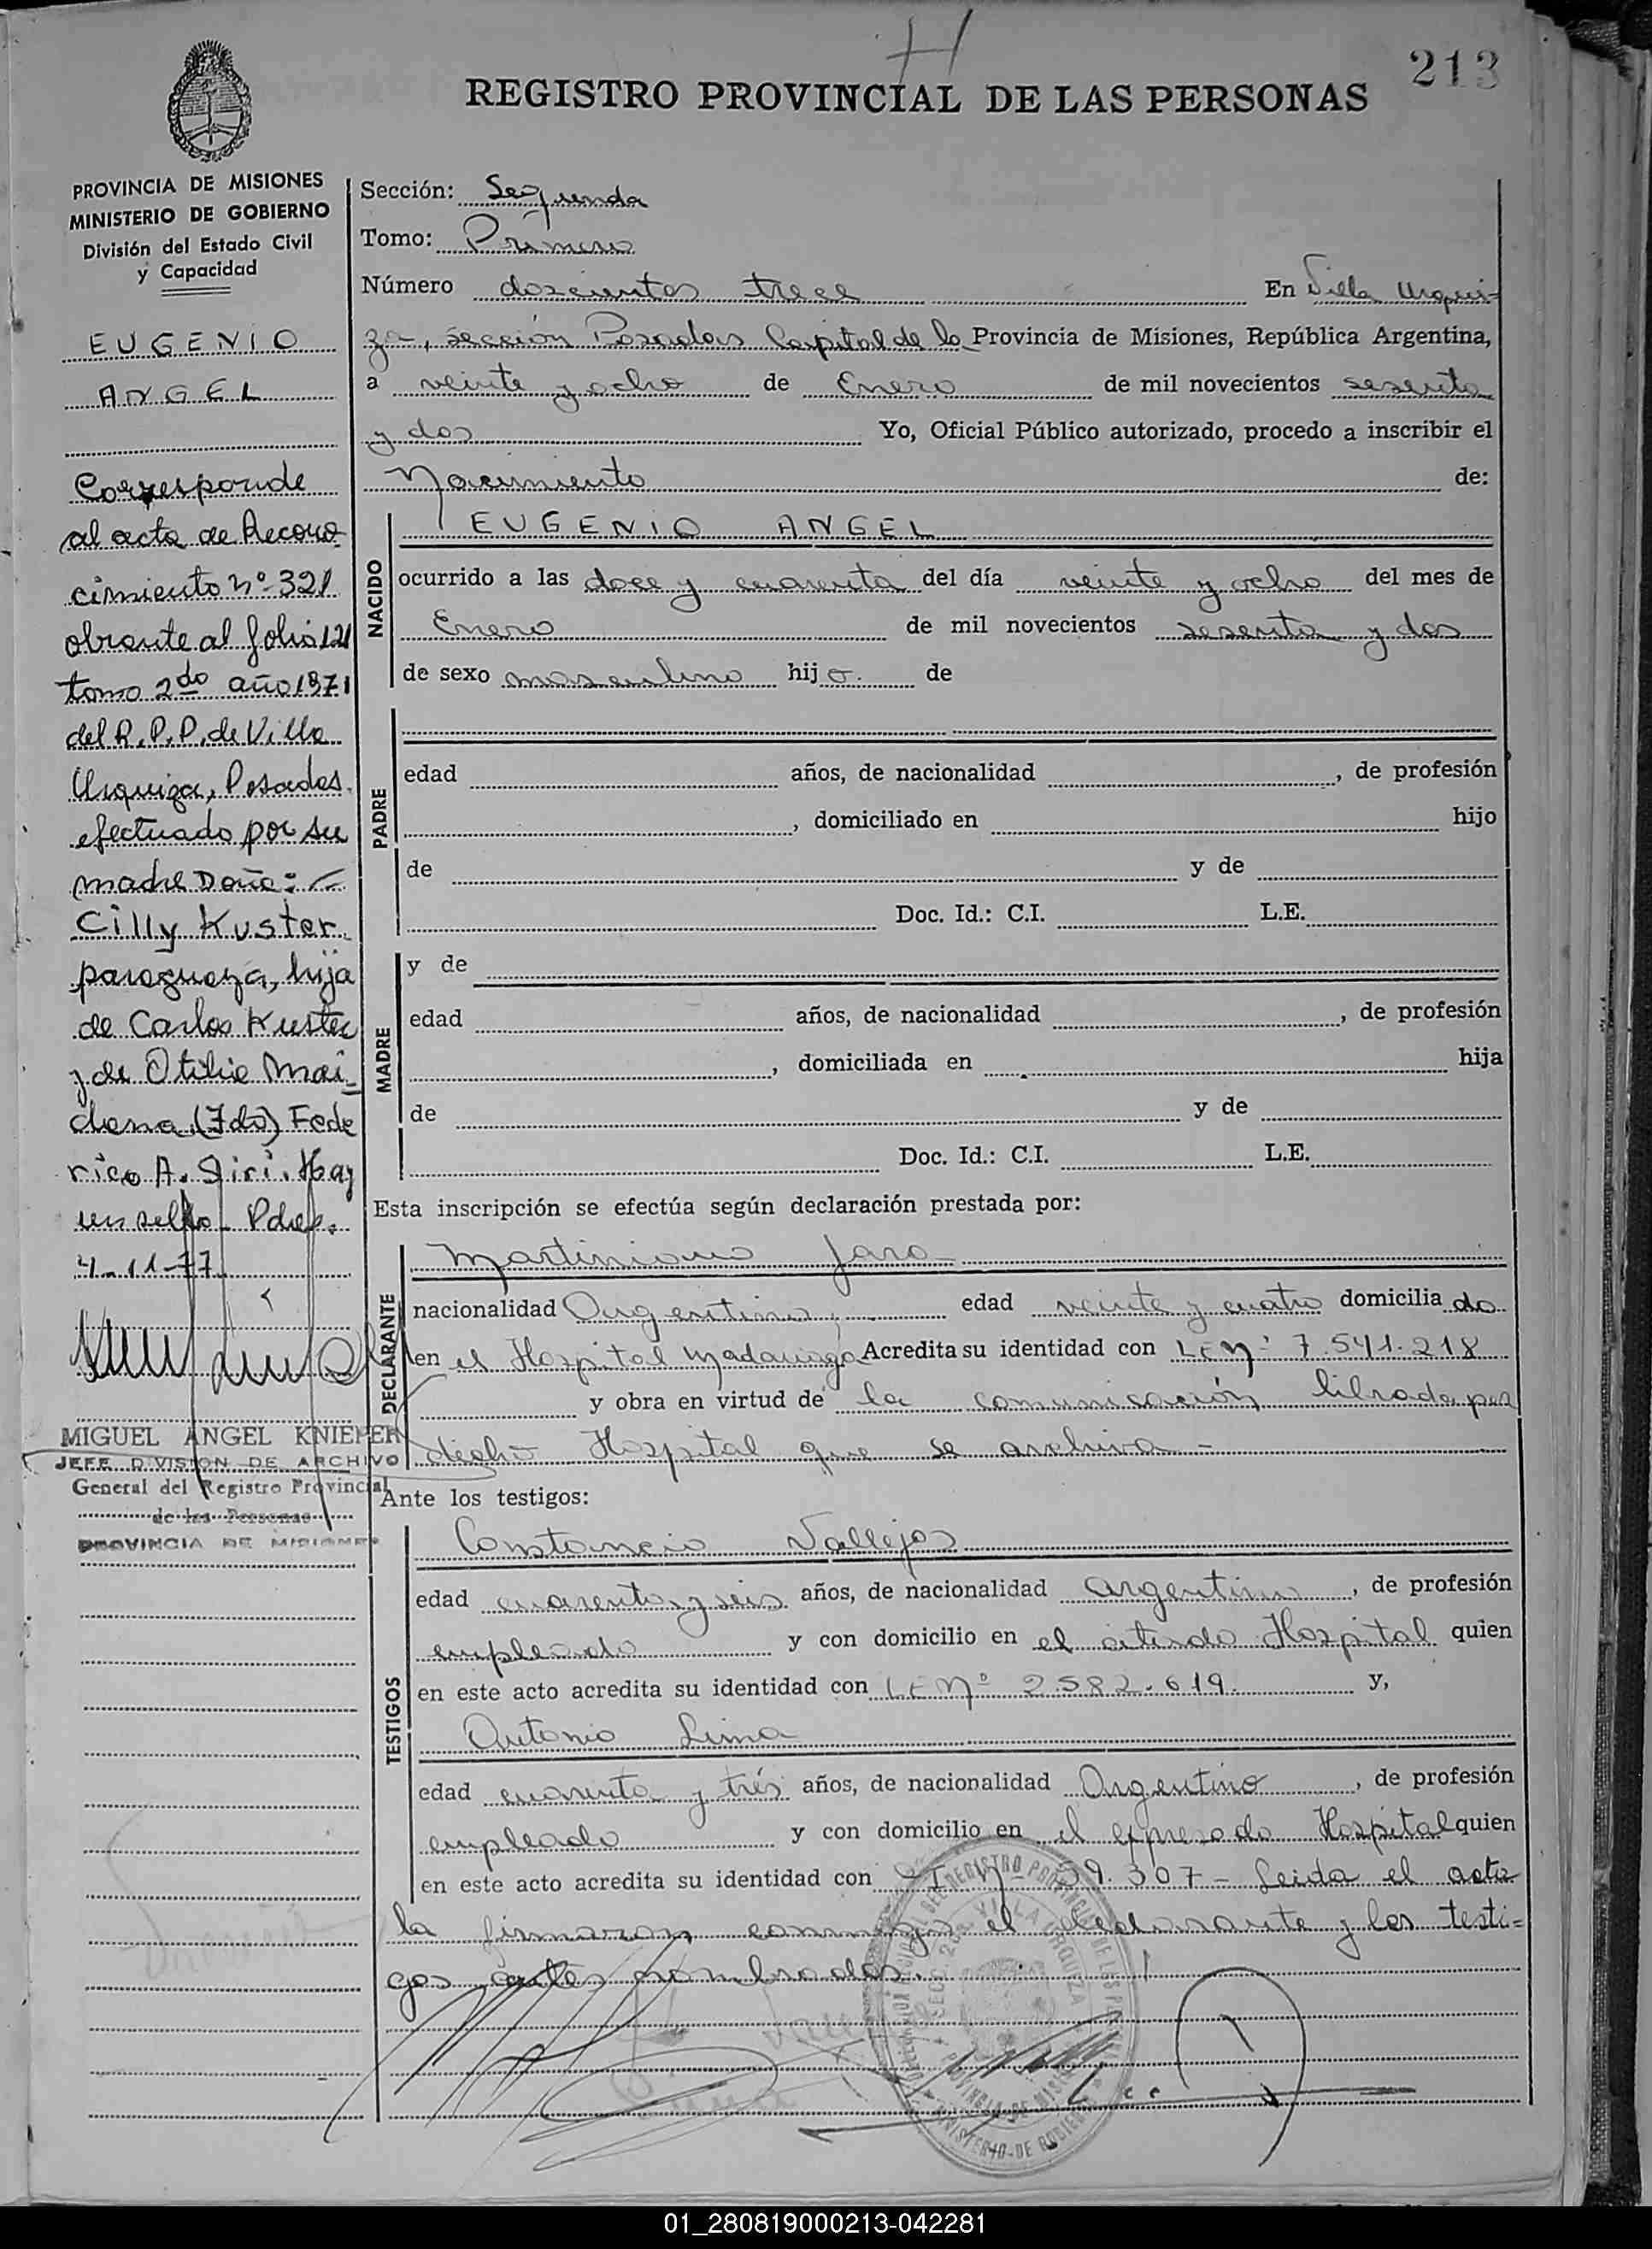 213
REGISTRO PROVINCIAL DE LAS PERSONAS
PROVINCIA DE MISIONES
MINISTERIO DE GOBIERNO
División del Estado Civil
y Capacidad
EUGENIO
ANGEL
Corresponde
al acta de Recono
cimiento nº 321
obrante al folio 121
tomo 2do año 1971
del R.P.P. de Villa
Urquiza, Posadas
efectuado por su
madre Doña:
Cilly Kuster
paraguaya, hija
de Carlos Kuster
y de Otilia Mai-
dana (Fdo) Fede
rico A. Siri. Hay
un sello - Pdas.
4-11-77
MIGUEL ANGEL KNIEPER
JEFE DIVISION DE ARCHIVO
General del Registro Provincial
de las Personas
PROVINCIA DE MISIONES
Sección: Segunda
Tomo: Primero
Número doscientos trece En Villa Urqui-
za, sección Posadas Capital de la Provincia de Misiones, República Argentina,
a veinte y ocho de Enero de mil novecientos sesenta
y dos Yo, Oficial Público autorizado, procedo a inscribir el
Nacimiento de:
NACIDO
EUGENIO ANGEL
ocurrido a las doce y cuarenta del día veinte y ocho del mes de
Enero de mil novecientos sesenta y dos
de sexo masculino hijo. de
PADRE
edad años, de nacionalidad , de profesión
, domiciliado en hijo
de y de
Doc. Id.: C.I. L.E.
MADRE
y de
edad años, de nacionalidad , de profesión
, domiciliada en hija
de y de
Doc. Id.: C.I. L.E.
Esta inscripción se efectúa según declaración prestada por:
DECLARANTE
Martiniano Jara
nacionalidad Argentina, edad veinte y cuatro domiciliado
en el Hospital Madariaga Acredita su identidad con LE Nº 7.541.218
y obra en virtud de la comunicación librada por
dicho Hospital que se archiva -
Ante los testigos:
TESTIGOS
Constancio Vallejos
edad cuarenta y seis años, de nacionalidad argentino, de profesión
empleado y con domicilio en el citado Hospital quien
en este acto acredita su identidad con LE Nº 2.582.619. y,
Antonio Lima
edad cuarenta y trés años, de nacionalidad Argentino, de profesión
empleado y con domicilio en el expresado Hospital quien
en este acto acredita su identidad con CI Nº 59.307 - Leida el acta
la firmaron conmigo el declarante y los testi=
gos antes nombrados.
01_280819000213-042281